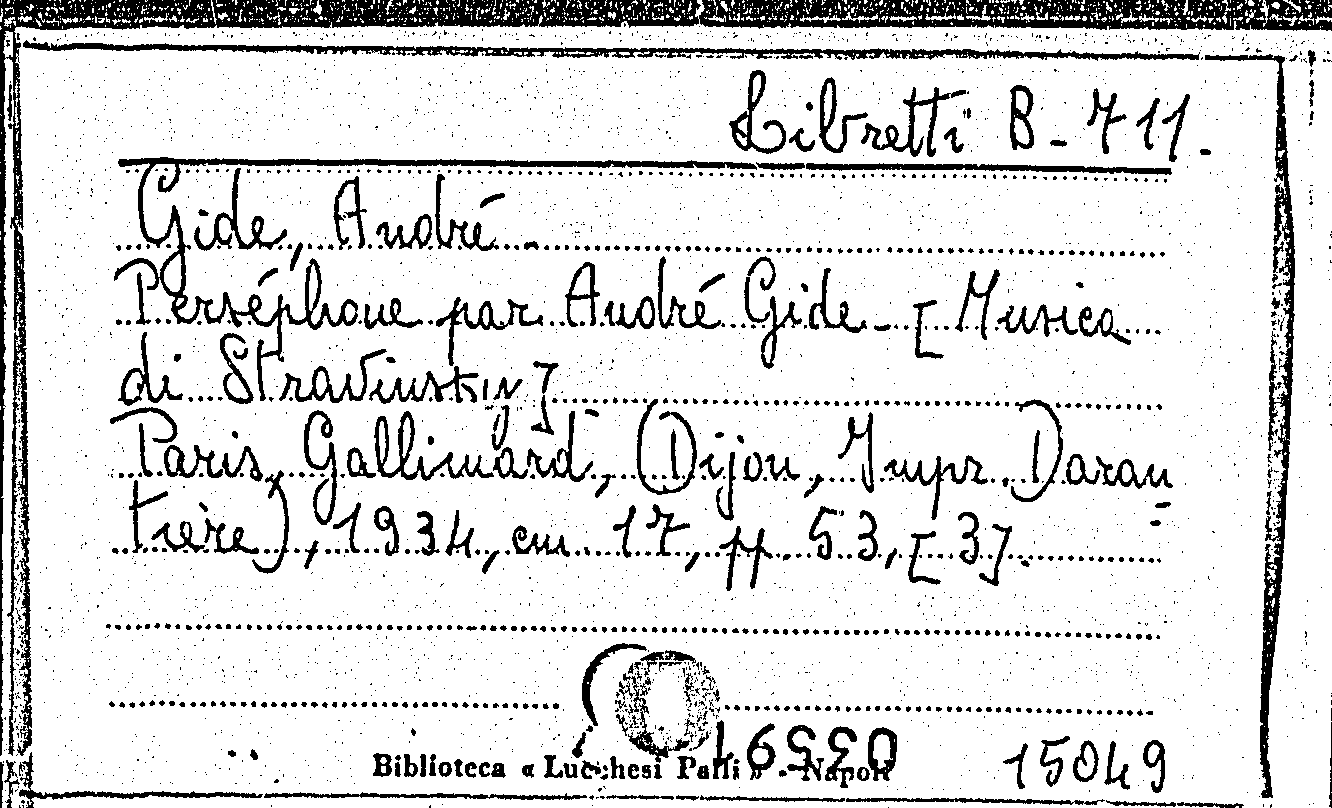 Libretti B - 711.
Gide, André -
Perséphone par André Gide - [Musica
di Stravinskiy]
Paris, Gallimard, (Dijon, Impr. Daran
tière), 1934, cm. 17, pp. 53, [3].
15049
Biblioteca « Lucchesi Palli » - Napoli